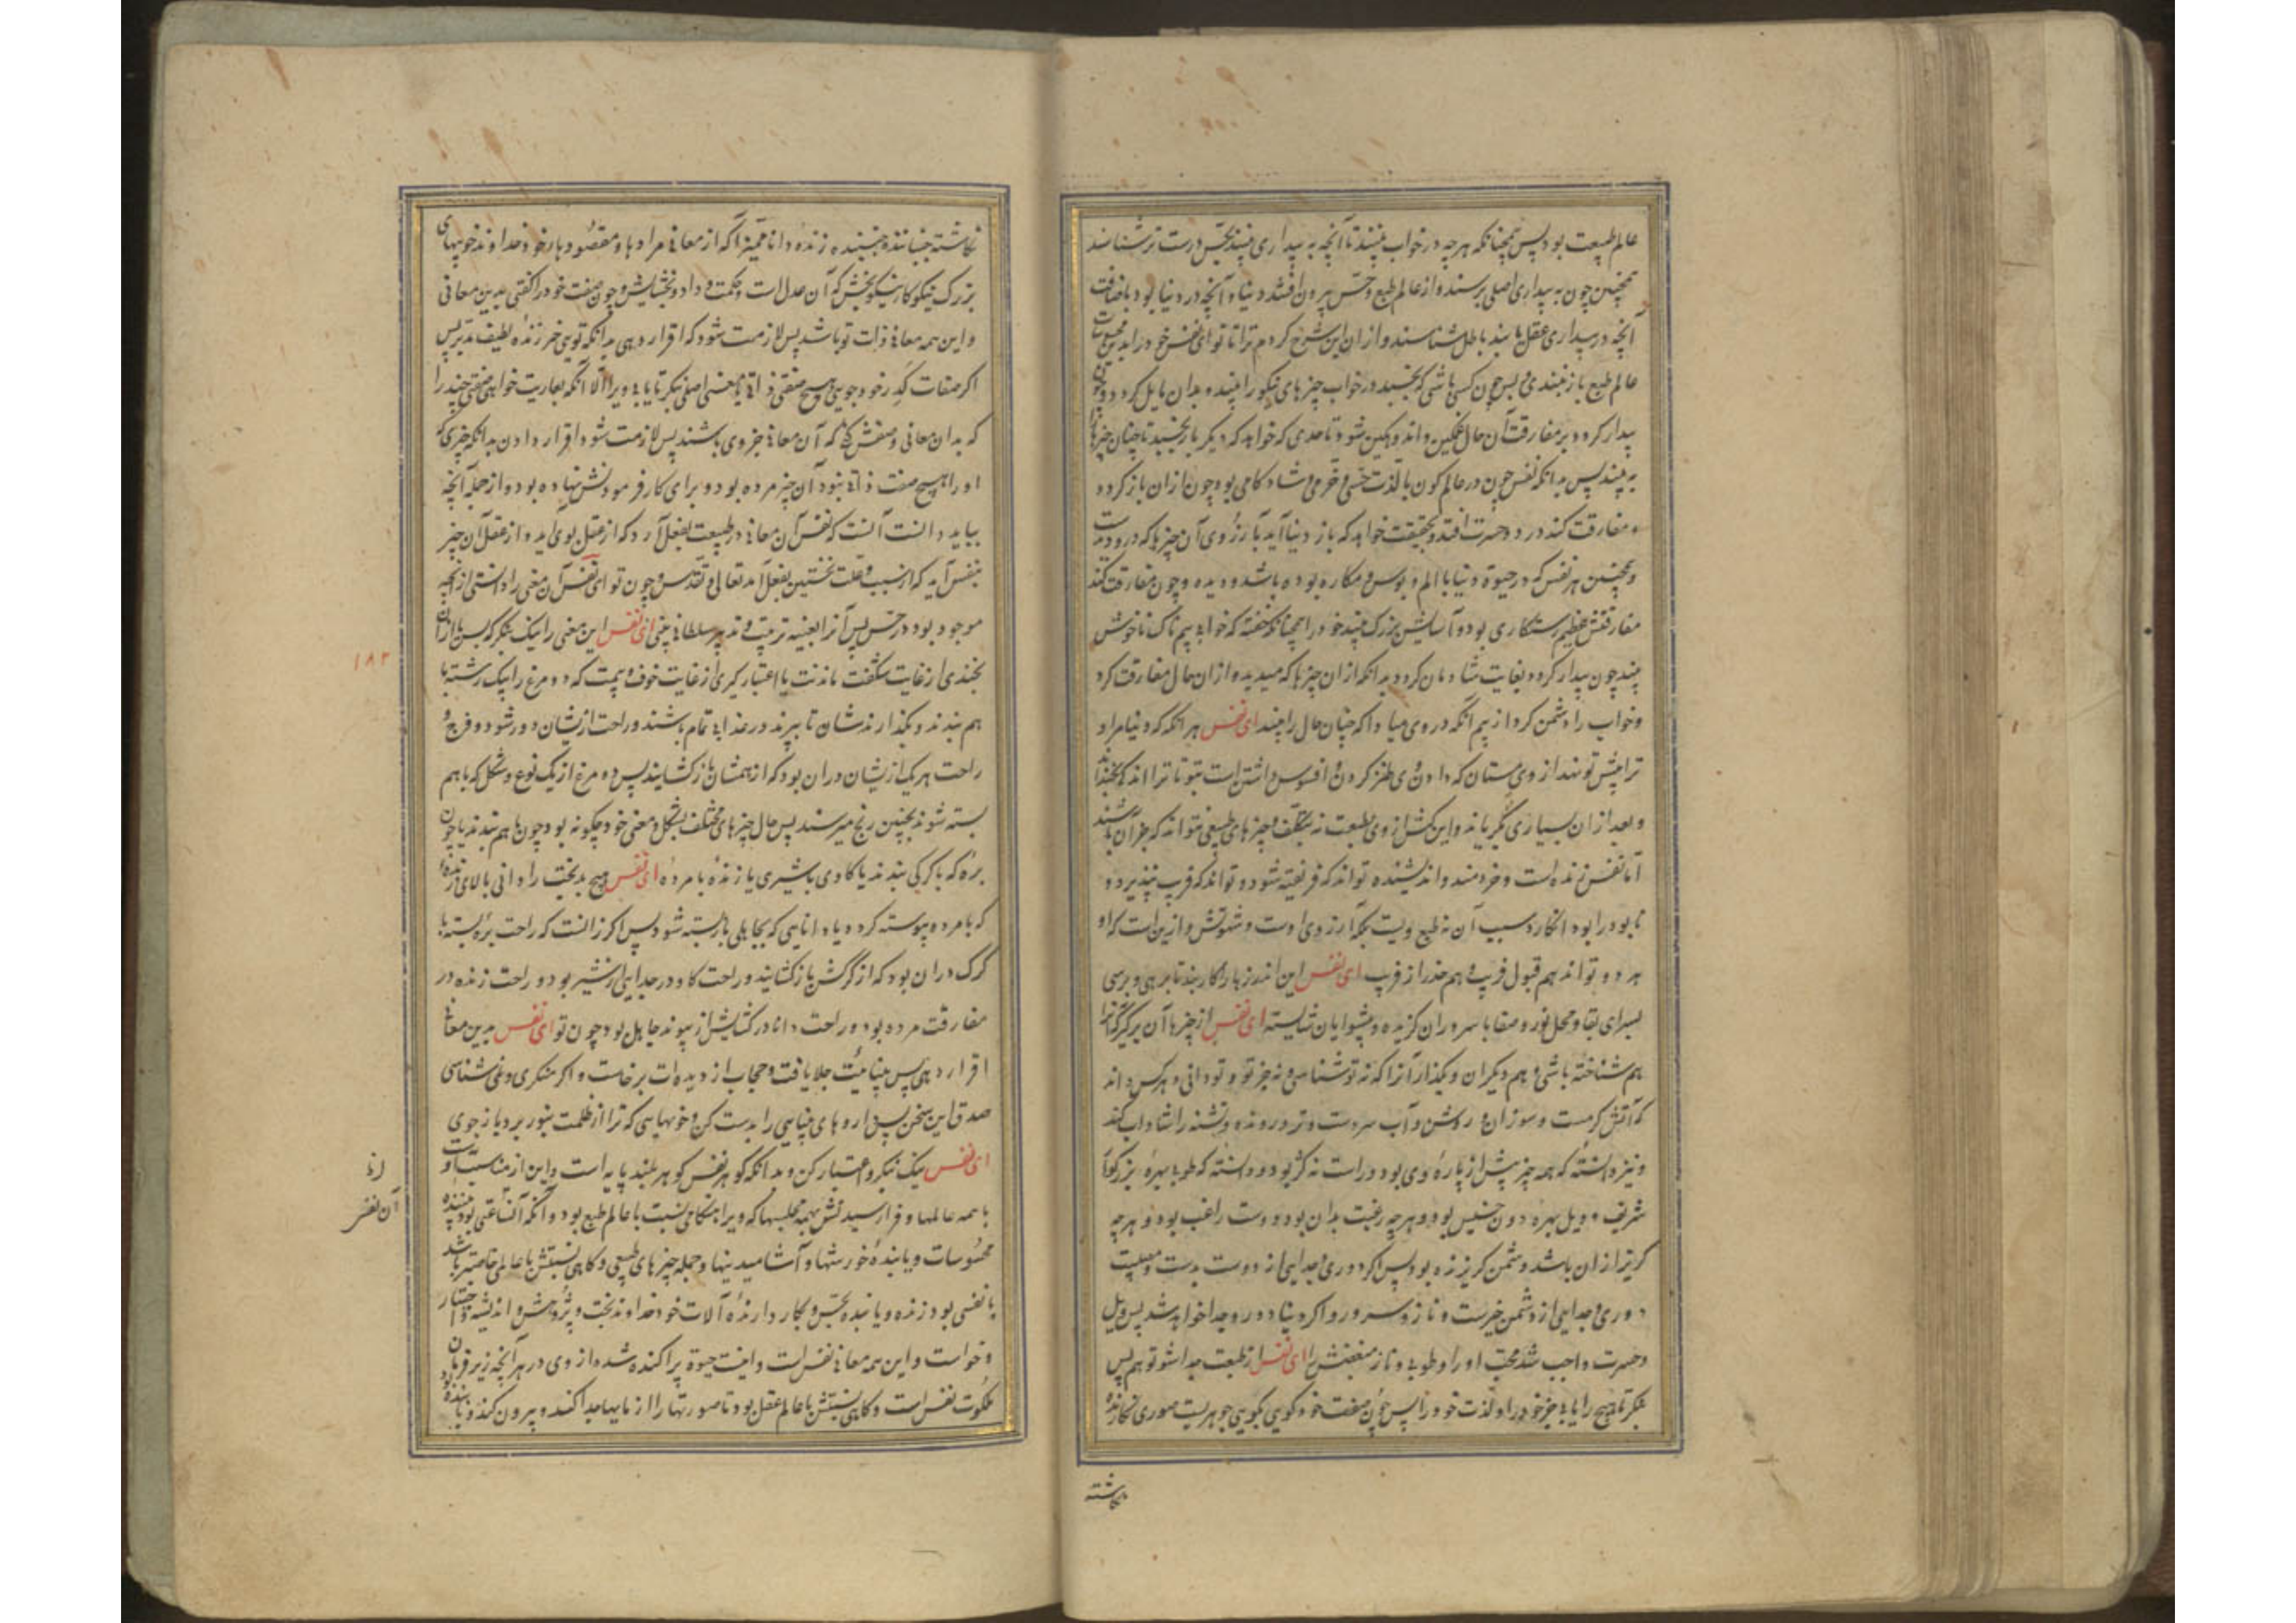 عالم طبیعت بود پس همچنانکه هرچه در خواب بینند تا آنچه به بیداری بینند بحس درست تر شناسند
همچنین چون به بیداری اصلی برسند و از عالم طبع و حس بیرون افتند دنیا و آنچه در دنیا بود باضافت
آنچه در بیداری عقل یابند باطل شناسند و از ان این شرح کردم ترا تا تو ای نفس خود را بدین محسوسات
عالم طبع باز نبندی و پس چون کسی باشی که بخسبد در خواب چیزهای نیکو را بیند و بدان مایل گردد و چون
بیدار گردد بر مفارقت آن حال غمگین و اندوهگین شود تا حدی که خواهد که دیگر بار بخسبد تا چنان چیزها
به بیند پس بدانکه نفس چون در عالم کون با لذت حسی و خرمی و شادکامی بود چون از ان باز گردد
و مفارقت کند در درد و حسرت افتد و بحقیقت خواهد که باز دنیا آید بآرزوی آن چیزها که درو دیدست
و همچنین هر نفس که در حیوة دنیا با الم و بوس و مکاره بوده باشد و دیده و چون مفارقت کند
مفارقتش عظیم رستگاری بود و آسایش بزرگ بیند خود را همچنانکه خفته که خواب بیم ناک ناخوش
بیند چون بیدار گردد بغایت شادمان گردد بدانکه از ان چیزها که میدید و از ان حال مفارقت کرد
و خواب را دشمن گرد از بیم انکه در وی مبادا که چنان حال را بیند ای نفس هر انکه که دنیا مراد
ترا پیش تو نهد از وی مستان که دادن وی طنز کردن و افسوس داشتن است بتو تا ترا اندکی بخنداند
و بعد از ان بسیاری بگریاند و این کنش از وی بطبیعت نه بتکلف و چیزهای طبیعی نتواند که جز آن باشند
اما نفس زنده است و خردمند و اندیشنده تواند که فریفته شود و تواند که فریب نپذیرد و
نابود را بوده انگارد سبب آن نه طبع ویست بلکه آرزوی اوست و شهوتش و ازین است که او
هر دو تواند هم قبول فریب و هم حذر از فریب ای نفس این اندرزها را کار بند تا برهی و برسی
بسرای بقا و محل نور و صفا با سروران گزیده و پیشوایان شایسته ای نفس از چیزها آن برگیر که آنرا
هم شناخته باشی و هم دیگران و بگذار آنرا که نه تو شناسی و نه جز تو و تو دانی و هر کس داند
که آتش گرمست و سوزان و روشن و آب سردست و تر و رونده و تشنه را شاداب کند
و نیز دانسته که همه چیز بیش از پاره وی بود و راست نه کژ بود و دانسته که طوبی بهره بزرگوار
شریف و ویل بهره دون خسیس بود و هرچه رغبت بدان بود دوست راغب بود و هرچه
گریز از ان باشد دشمن گریزنده بود پس اگر دوری و جدایی از دوست بدست و مصیبت
دوری و جدایی از دشمن خیرست و ناز و سرور و اگر دنیا دور و جدا خواهد شد پس ویل
و حسرت واجب شد محب او را و طوبی و ناز مبغضش را ای نفس از طبیعت جدا شو تو هم پس
بنگر تا هیچ را یابی جز خود را و لذت خود را پس چون صفت خود گویی بگویی جوهریست صوری نگارنده
نگاشته
نگاشته جنباننده جنبیده زنده دانا ممیز آگه از معانی مرادها و مقصودها رخود خداوند خوییهای
بزرگ نیکوکار نیکو بخش که آن عدل است و حکمت و داد و بخشایش و چون صفت خود را گفتی بدین معانی
و این همه معانی ذات تو باشد پس لازمت شود که اقرار دهی بدانکه تویی خبر زنده لطیف مدبر پس
اگر صفات گدر خود جویی هیچ صفتی ذاتی و معنی اصلی بنگر تا یابی ویرا الا آنکه بعاریت خواهی صفتی چند را
که بدان معانی وصفش کنی که آن معانی جز وی باشند پس لازمت شود اقرار دادن بدانکه چیزی که
او را هیچ صفت ذاتی نبود آن چیز مرده بود و برای کار فرمودنش نهاده بود و از جمله آنچه
بباید دانست آنست که نفس آن معانی در طبیعت بفعل آرد که از عقل بوی آید و از عقل آن چیز
بنفس آید که از سبب و علت نخستین بفعل آمد تعالی و تقدس و چون تو ای نفس آن معنی را دانستی از آنچه
موجود بود در حس پس آنرا بعینه ترتیب و تدبیر سلطانی بینی ای نفس این معنی را نیک بنگر که بس باز ان
بخندی از غایت شگفت ماندنت یا اعتبار گیری از غایت خوف و بیمت که دو مرغ را بیک رشته با
هم ببندند و بگذارندشان تا بپرند در عذابی تمام باشند و راحت ازیشان دور شود و فرج و
راحت هر یک ازیشان در ان بود که از همشان باز گشایند پس دو مرغ از یک نوع و شکل که با هم
بسته شوند چنین رنج میرسند پس حال چیزهای مختلف بشکل و معنی خود چگونه بود چون با هم بندند یا چون
بره که با گرگی بندند یا گاوی با شیری یا زنده با مرده ای نفس هیچ بدبخت را دانی بالای زنده
که با مرده پیوسته گردد یا دانایی که بجاهلی باز بسته شود پس اگر زانست که راحت بره بسته با
گرگ در ان بود که از گرگش باز گشایند و راحت گاو در جدایی از شیر بود و راحت زنده در
مفارقت مرده بود و راحت دانا در گشایش از پیوند جاهل بود چون تو ای نفس بدین معانی
اقرار دهی پس بیناییت جلا یافت و حجاب از دیده‌ات برخاست و اگر منکری و نمی شناسی
صدق این سخن پس داروهای بینایی را بدست کن و خوبهایی که ترا از ظلمت بنور برد باز جوی
ای نفس نیک بنگر و اعتبار کن و بدانکه گوهر نفس گوهر بلند پایه است و این از مناسبت او
با همه عالمها و فرا رسیدنش بهمه مجلسها که ویرا هنگامی نسبت با عالم طبع بود و آنگه آنساعتی بود بیننده
محسوسات و یابنده خورشها و آشامیدنیها و جمله چیزهای طبیعی و گاهی نسبتش با عالمی خاصتر باشد
یا نفسی بود زنده و یابنده بحس و بکار دارنده آلات خود خداوند بحث و پژوهش و اندیشه و اختیار
و خواست و این همه معانی نفس است و اینت حیوة پراکنده شده از وی در هر آنچه زیر فرمان
ملکوت نفس است و گاهی نسبتش با عالم عقل بود تا صورتها را از مایها جدا کند و بیرون کند و یابنده بود
۱۸۲
آن نفس